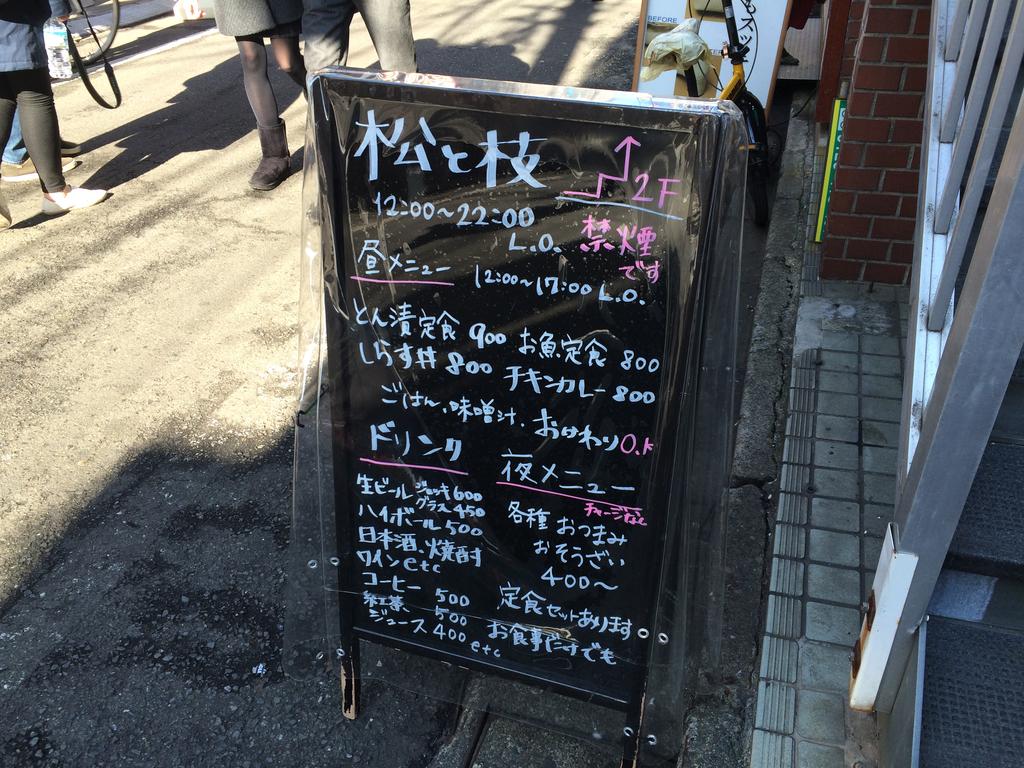 BEFORE
松と枝
2F
12:00~22:00
L.O.
禁煙
です
昼メニュー
12:00~17:00 L.O.
とん漬定食 900
お魚定食 800
しらす丼 800
チキンカレー 800
ごはん、味噌汁、おかわりO.K
ドリンク
生ビール ジョッキ 600
グラス 450
ハイボール 500
日本酒、焼酎
ワイン etc
コーヒー 500
紅茶 500
ジュース 400 etc
夜メニュー
チャージなし
各種おつまみ
おそうざい
400~
定食セットあります
お食事だけでも